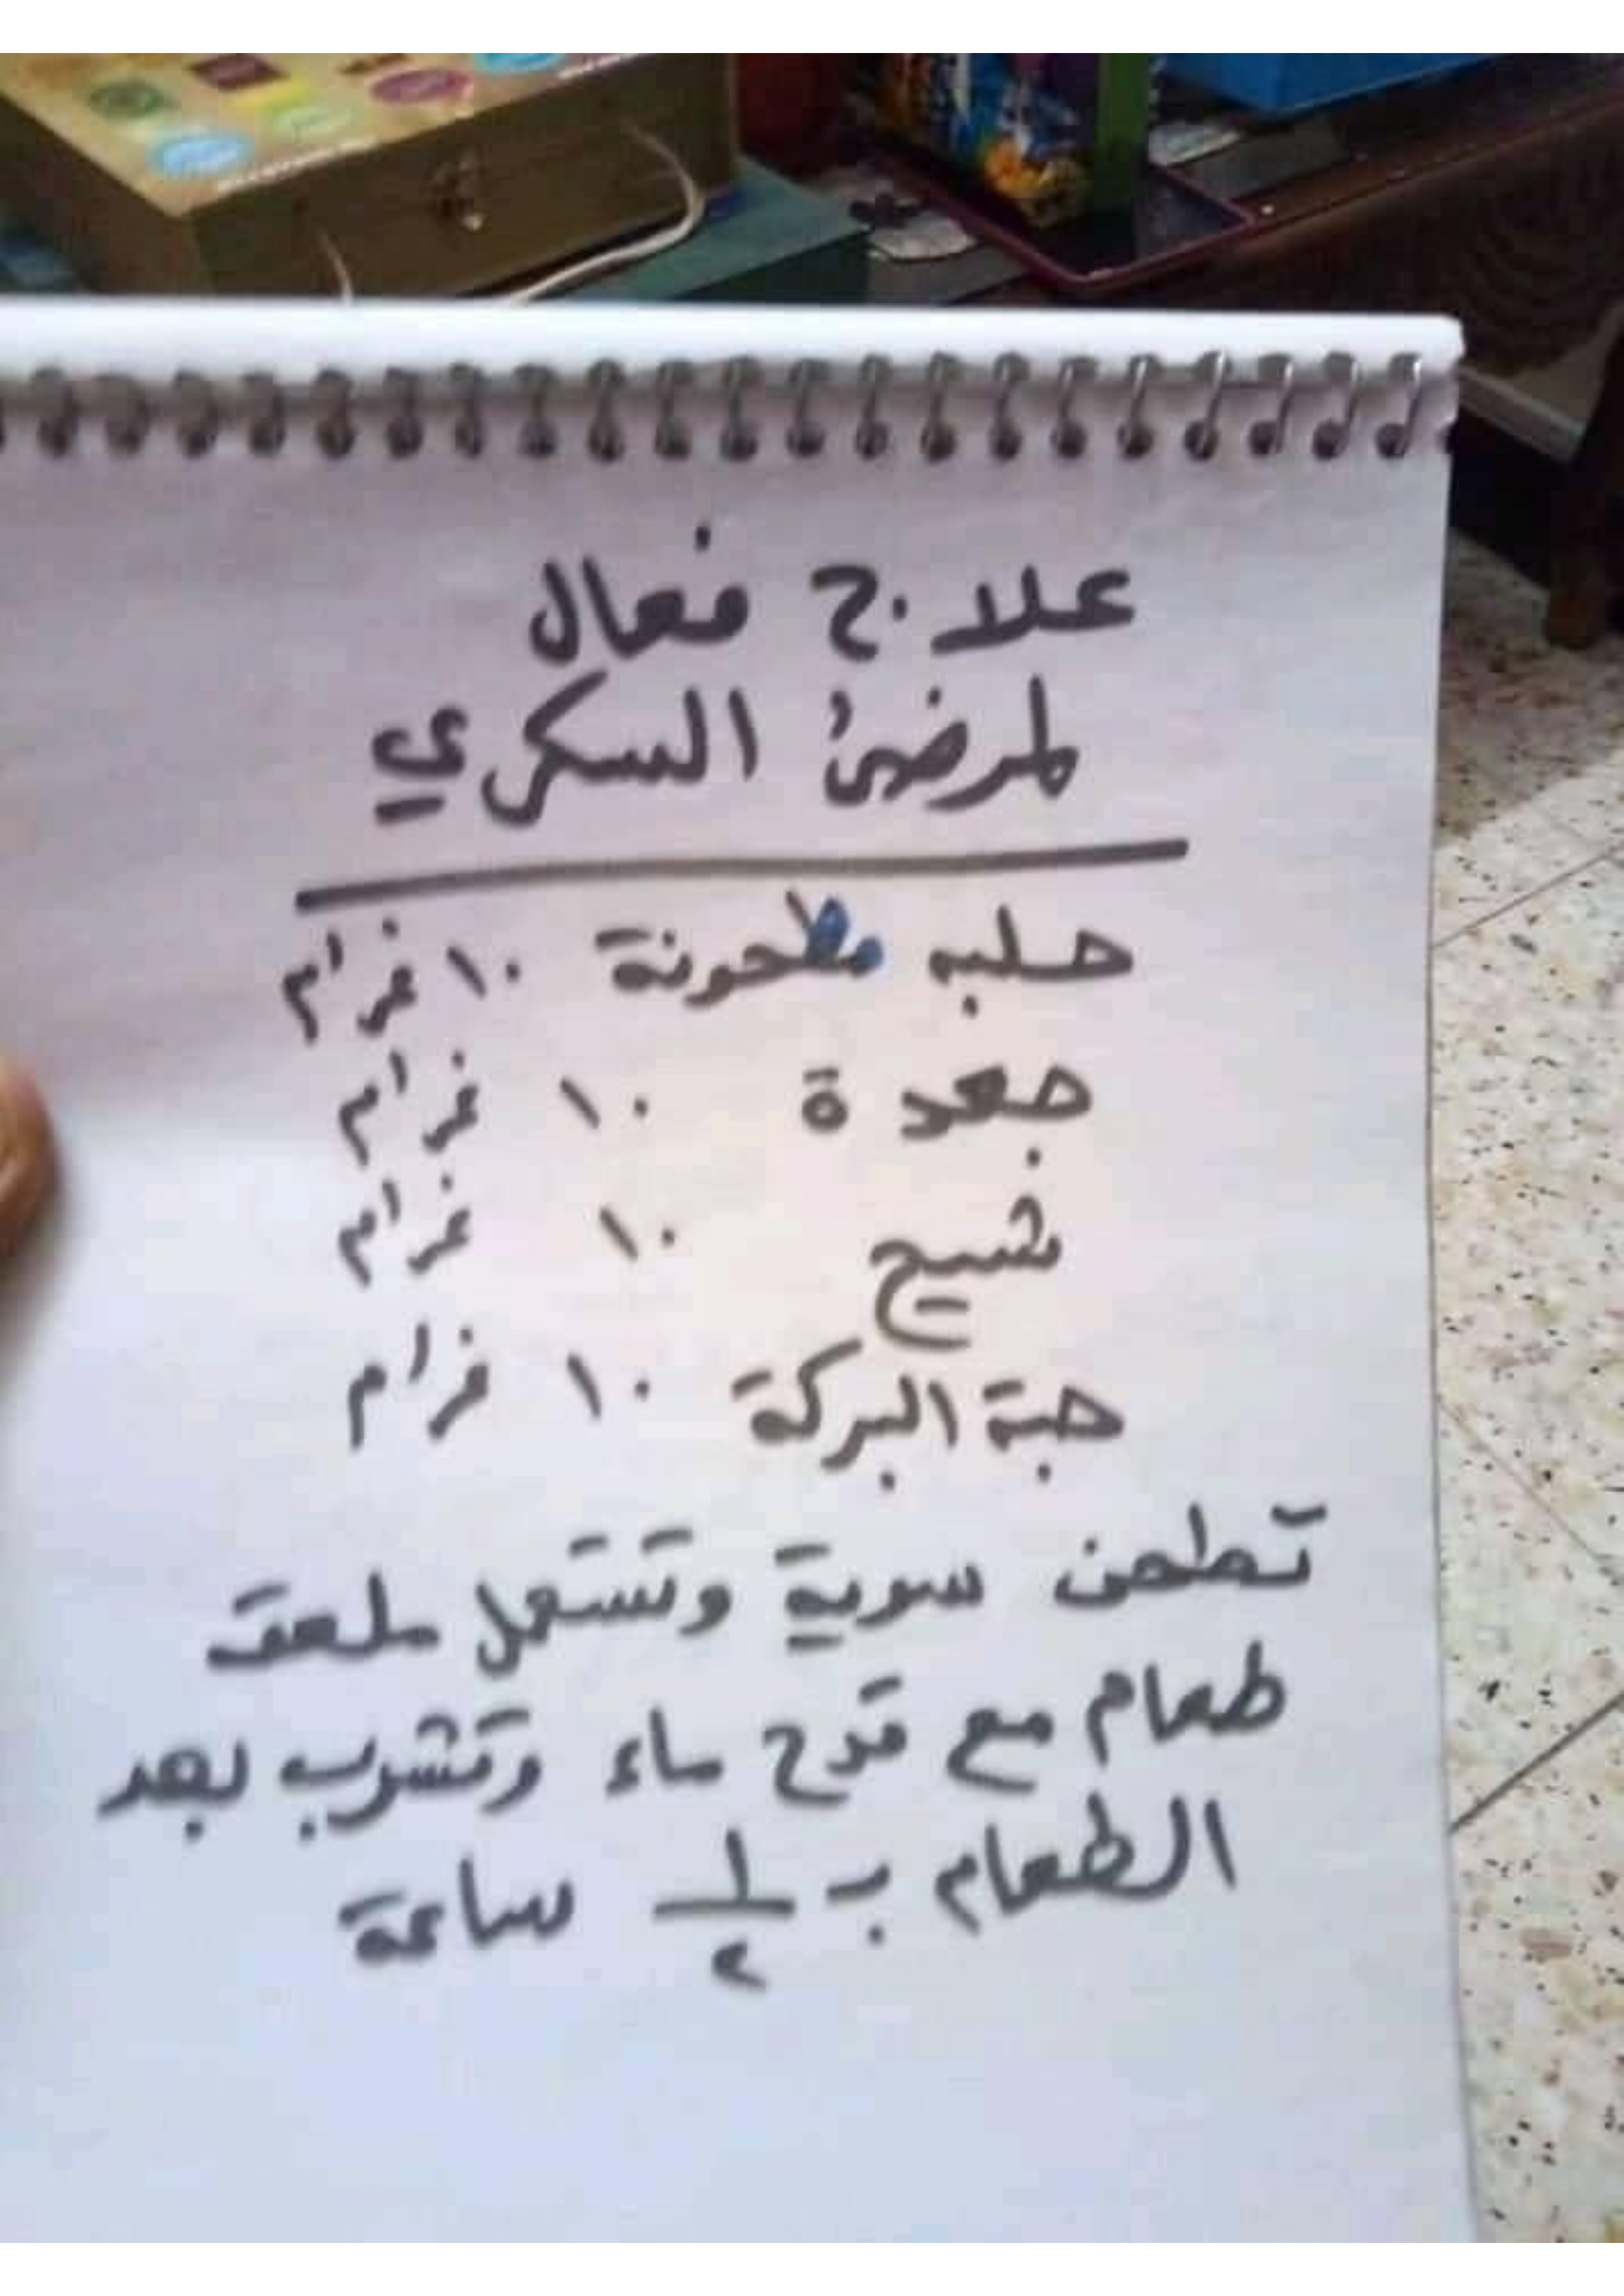 علاج فعال
لمرضى السكري
حلبه مطحونة ١٠ غرام
جعدة ١٠ غرام
شيح ١٠ غرام
حبة البركة ١٠ غرام
تطحن سوية وتستعمل ملعقة
طعام مع قدح ماء وتشرب بعد
الطعام بـ ١/٢ ساعة